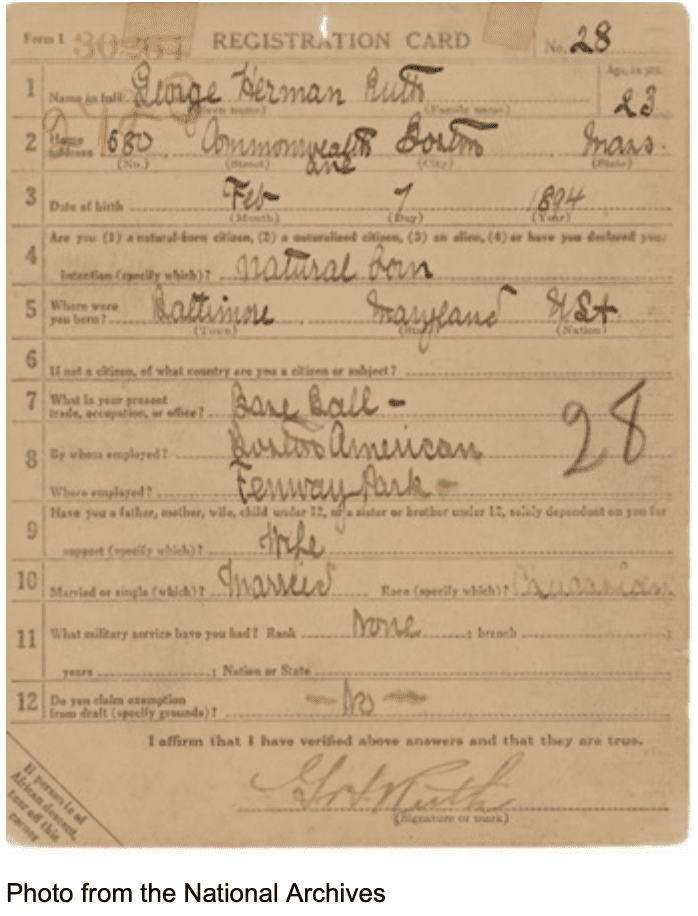 Form 1 30267 REGISTRATION CARD No. 28
1 Name in full George Herman Ruth Age, in yrs. 23
(Given name) (Family name)
2 Home address 680 Commonwealth ave Boston Mass.
(No.) (Street) (City) (State)
3 Date of birth Feb 7 1894
(Month) (Day) (Year)
4 Are you (1) a natural-born citizen, (2) a naturalized citizen, (3) an alien, (4) or have you declared your
intention (specify which)? natural born
5 Where were you born? Baltimore Maryland USA
(Town) (State) (Nation)
6 If not a citizen, of what country are you a citizen or subject?
7 What is your present trade, occupation, or office? Base Ball - 28
8 By whom employed? Boston American
Where employed? Fenway Park -
9 Have you a father, mother, wife, child under 12, or a sister or brother under 12, solely dependent on you for
support (specify which)? Wife
10 Married or single (which)? Married Race (specify which)? Caucasian
11 What military service have you had? Rank None ; branch ;
years ; Nation or State
12 Do you claim exemption from draft (specify grounds)? - No -
I affirm that I have verified above answers and that they are true.
G H Ruth
(Signature or mark)
If person is of
African descent,
tear off this
corner
Photo from the National Archives